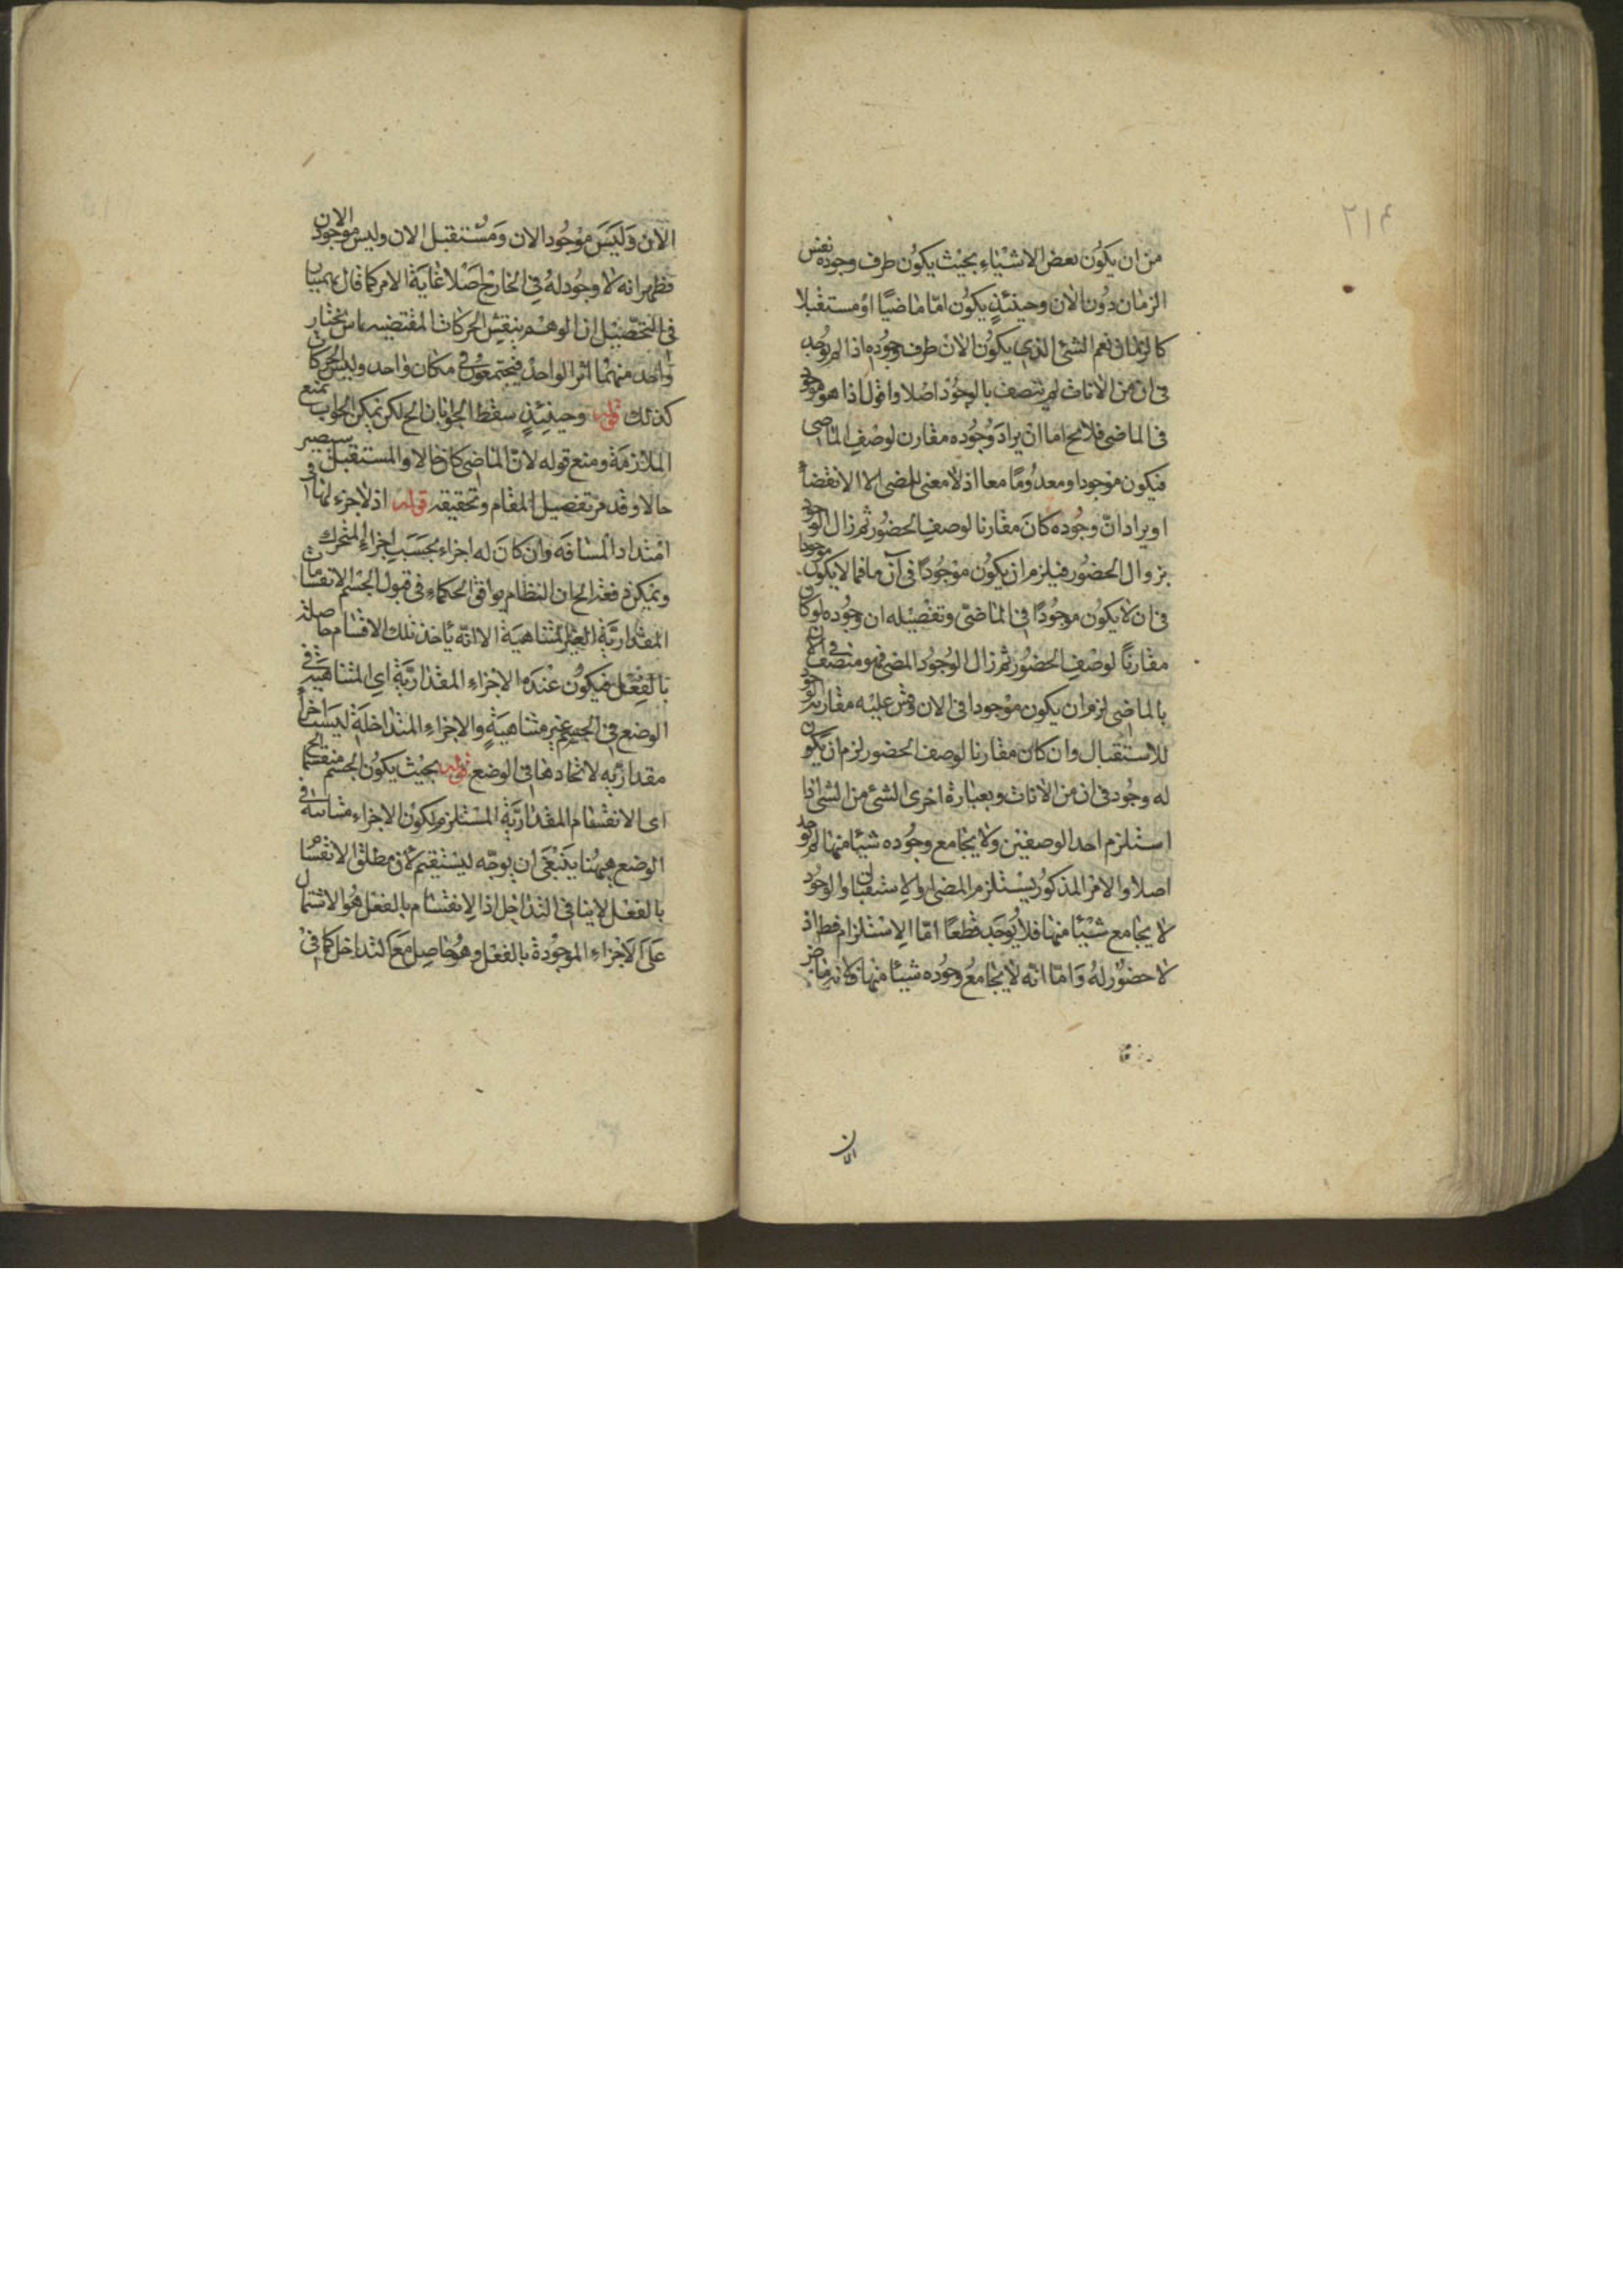 ٢١٤
من ان يكون بعض الاشياء بحيث يكون طرف وجوده نفس
الزمان دون الان وحينئذ يكون اما ماضيا او مستقبلا
كالزمان نعم الشئ الذي يكون الان طرف وجوده اذا لم يوجد
فى ان من الانات لم يتصف بالوجود اصلا واقول اذا هو موجود
فى الماضى فلا يخ اما ان يراد وجوده مقارن لوصف الماضى
فيكون موجودا ومعدوما معا اذ لا معنى للمضى الا الانقضاء
او يراد ان وجوده كان مقارنا لوصف الحضور ثم زال الوجود
بزوال الحضور فيلزم ان يكون موجودا فى آن ما فما لا يكون موجودا
فى ان لا يكون موجودا فى الماضى وتفصيله ان وجوده لو كان
مقارنا لوصف الحضور ثم زال الوجود المضى فهو متصف فى الان
بالماضى لزم ان يكون موجودا فى الان وقس عليه مقارنة الوجود
للاستقبال وان كان مقارنا لوصف الحضور لزم ان يكون
له وجود فى ان من الانات وبعبارة اخرى الشئ من الشئ اذا
استلزم احد الوصفين ولا يجامع وجوده شيئا منها لم يوجد
اصلا والامر المذكور يستلزم المضى او الاستقبال والوجود
لا يجامع شيئا منها فلا يوجد قطعا اما الاستلزام فظ اذ
لا حضور له واما انه لا يجامع وجوده شيئا منها فلانه ماض
الان
الان وليس موجودا الان ومستقبل الان وليس موجود الان
فظهر انه لا وجود له فى الخارج اصلا غاية الامر كما قال بهمنيار
فى التحصيل ان الوهم ينقش الحركات المقتضيه
واحد منهما اثر الواحد فيجتمعون فى مكان واحد وليس الحركات
كذلك قوله وحينئذ سقط الجوابان الخ لكن يمكن الجواب بمنع
الملازمة ومنع قوله لان الماضى كان حالا والمستقبل سيصير
حالا وقد مر تفصيل المقام وتحقيقه قوله اذ لا جزء لها فى
امتداد المسافه وان كان له اجزاء بحسب اجزاء المتحرك
ويمكن دفعه الخ ان النظام يوافق الحكماء فى قبول الجسم الانقسامات
المقدارية الغير المتناهية الا انه يأخذ تلك الاقسام حاصلة
بالفعل فيكون عنده الاجزاء المقدارية اى المتناهية فى
الوضع فى الجسم غير متناهية والاجزاء المتداخلة ليست اجزاء
مقداريه لاتحادها فى الوضع قوله بحيث يكون الجسم منقسما الخ
اى الانقسام المقدارية المستلزم لكون الاجزاء متباينة فى
الوضع ههنا ينبغى ان يوجه ليستقيم لان مطلق الانقسام
بالفعل لا ينافى التداخل اذ الانقسام بالفعل هو الاشتمال
على الاجزاء الموجودة بالفعل وهو حاصل مع التداخل كما فى